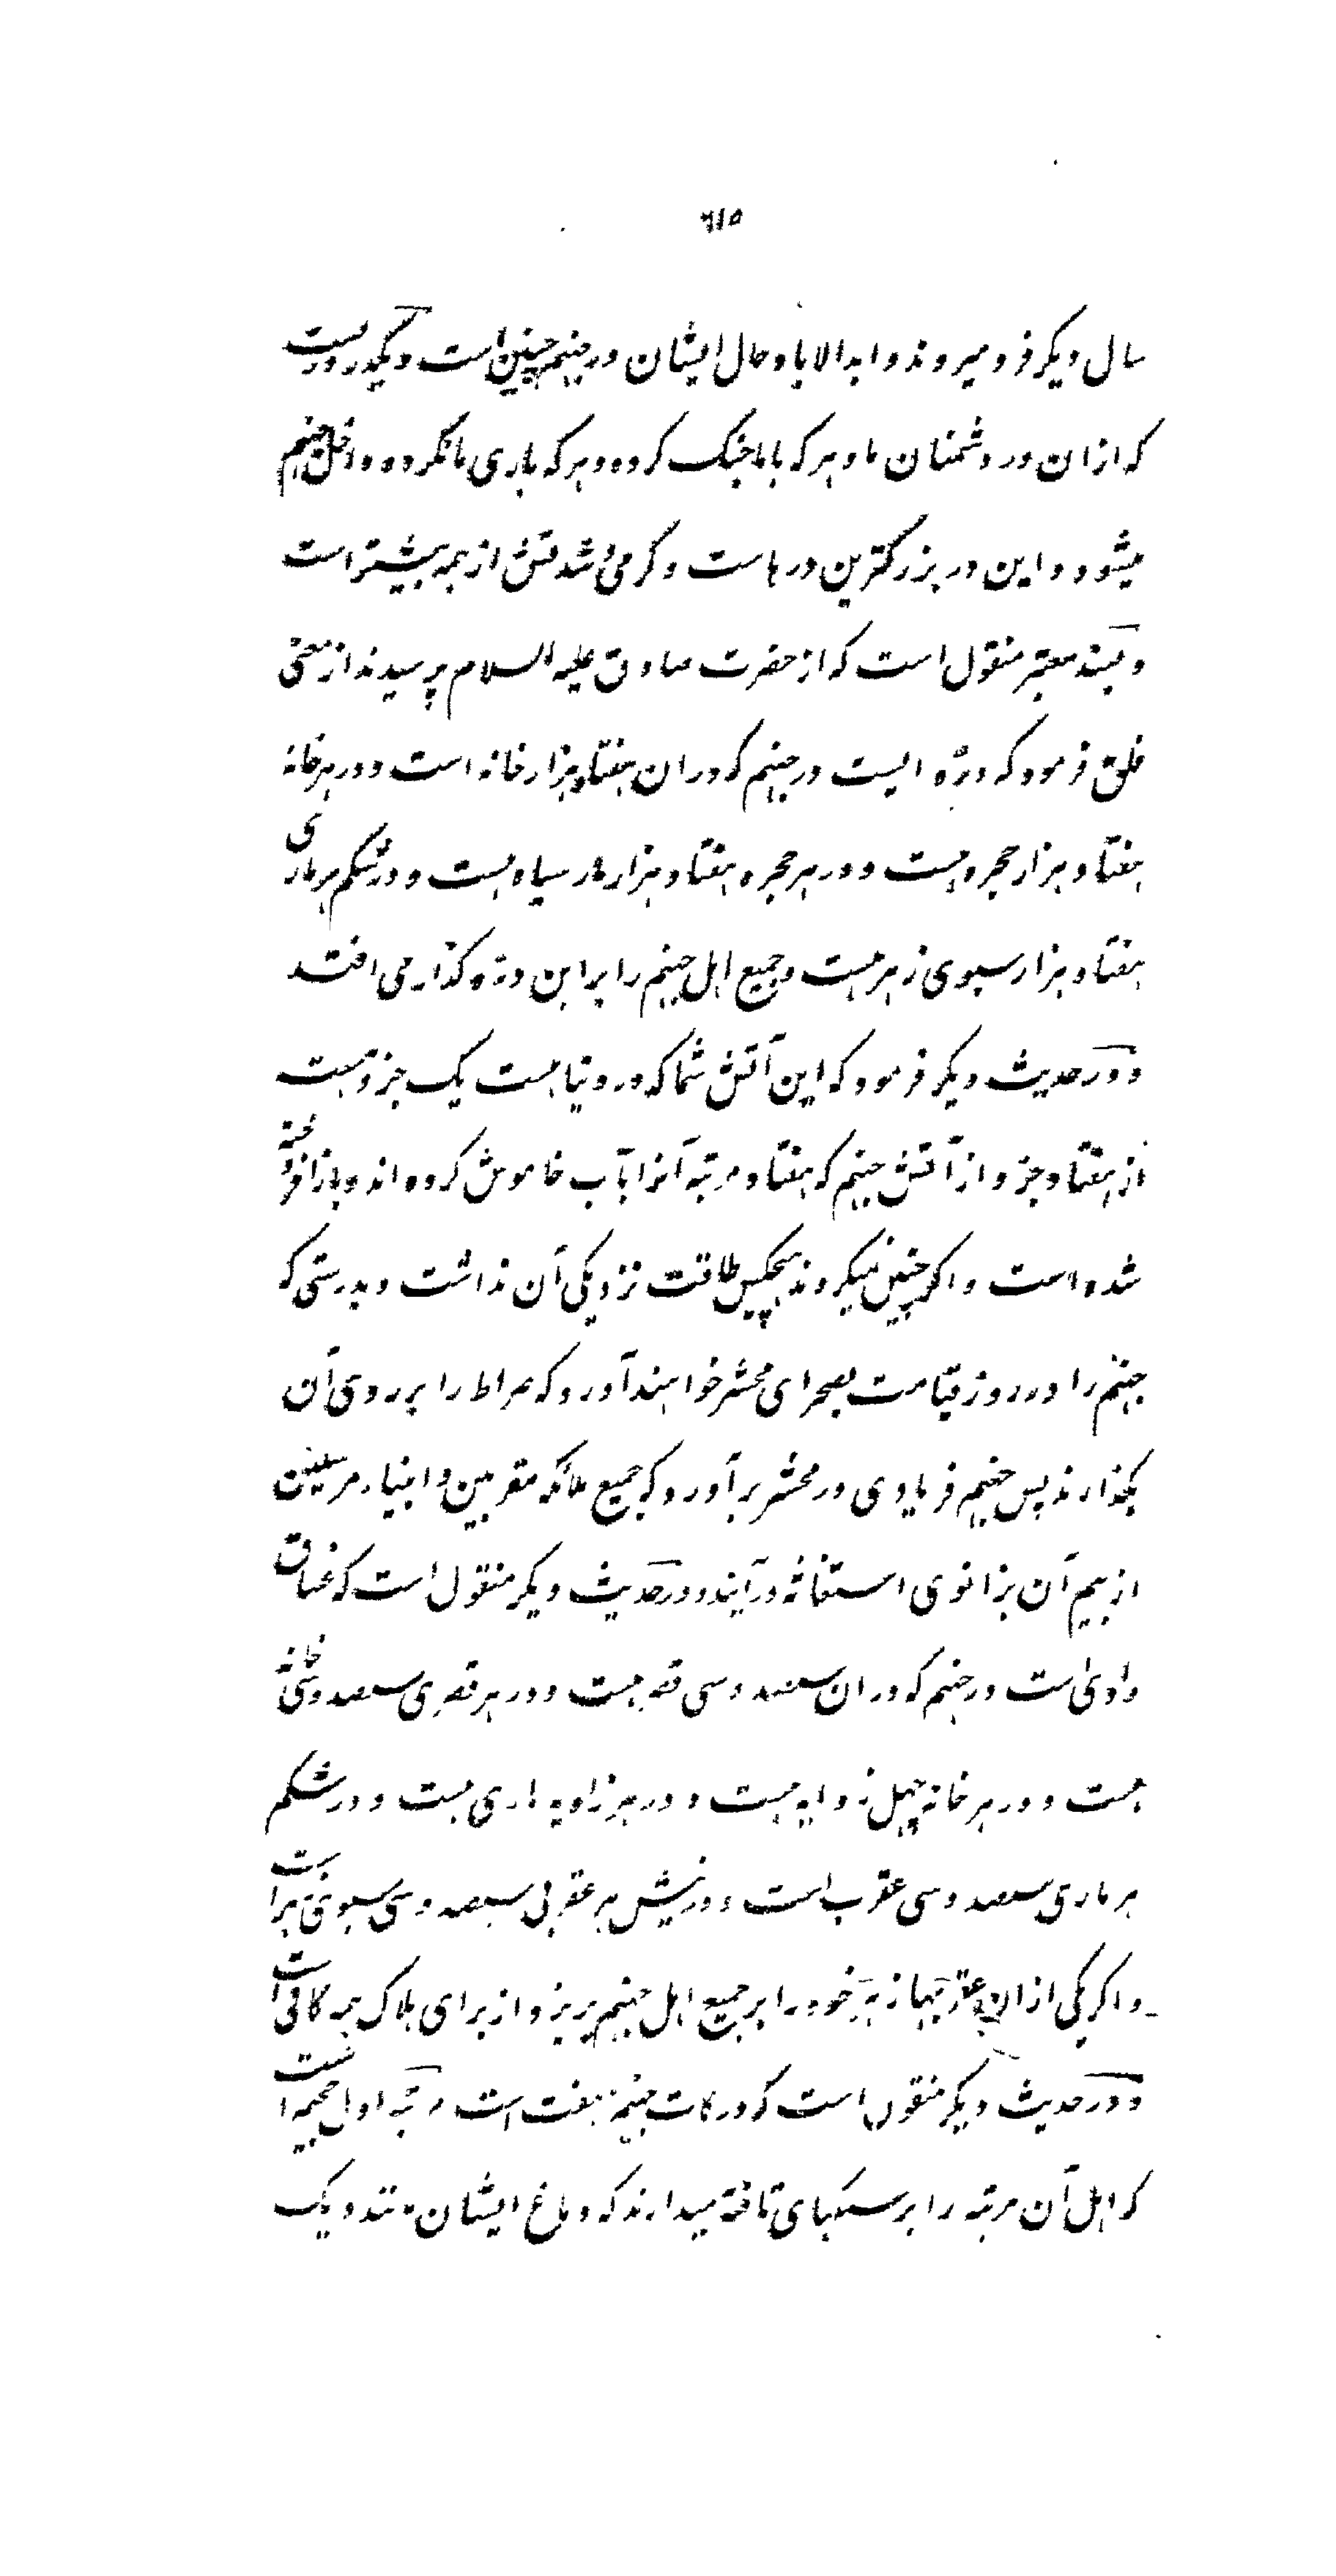 ٦١٥
سال دیکر فرو میروند و ابدالاباد حال ایشان در جهنم چنین است و یکدر دریست
که ازان در دشمنان ما و هر که با ما جنک کرده و هر که یاری ما نکرده داخل جهنم
میشود و این در بزرکترین درهاست و کرمی و شدتش از همه بیشتر است
و بسند معتبر منقول است که از حضرت صادق علیه السلام پرسیدند از معنی
فلق فرمود که درّه ایست در جهنم که دران هفتاد هزار خانه است و در هر خانه
هفتاد هزار حجره هست و در هر حجره هفتاد هزار مار سیاه هست و در شکم هر ماری
هفتاد هزار سبوی زهر هست و جمیع اهل جهنم را بر این درّه کذار می افتد
و در حدیث دیکر فرمود که این آتش شما که در دنیا هست یک جزویست
از هفتاد جزو از آتش جهنم که هفتاد مرتبه آنرا بآب خاموش کرده اند و باز افروخته
شده است و اکر چنین نمیکردند هیچکس طاقت نزدیکی آن نداشت و بدرستی که
جهنم را در روز قیامت بصحرای محشر خواهند آورد که صراط را بر روی آن
بکذارند پس جهنم فریادی در محشر برآورد که جمیع ملائکه مقربین و انبیاء مرسلین
از بیم آن بزانوی استغاثه درآیند و در حدیث دیکر منقول است که غساق
وادی است در جهنم که دران سیصد و سی قصر هست و در هر قصری سیصد و سی خانه
هست و در هر خانه چهل زوایه هست و در هر زاویه ماری هست و در شکم
هر ماری سیصد و سی عقرب است و در نیش هر عقربی سیصد و سی سبوی زهر است
و اکر یکی ازان عقربها زهر خود را بر جمیع اهل جهنم بریزد از برای هلاک همه کافی است
و در حدیث دیکر منقول است که درکات جهنم هفت است مرتبه اول جحیم است
که اهل آن مرتبه را بر سنکهای تافته میدارند که دماغ ایشان مانند دیک